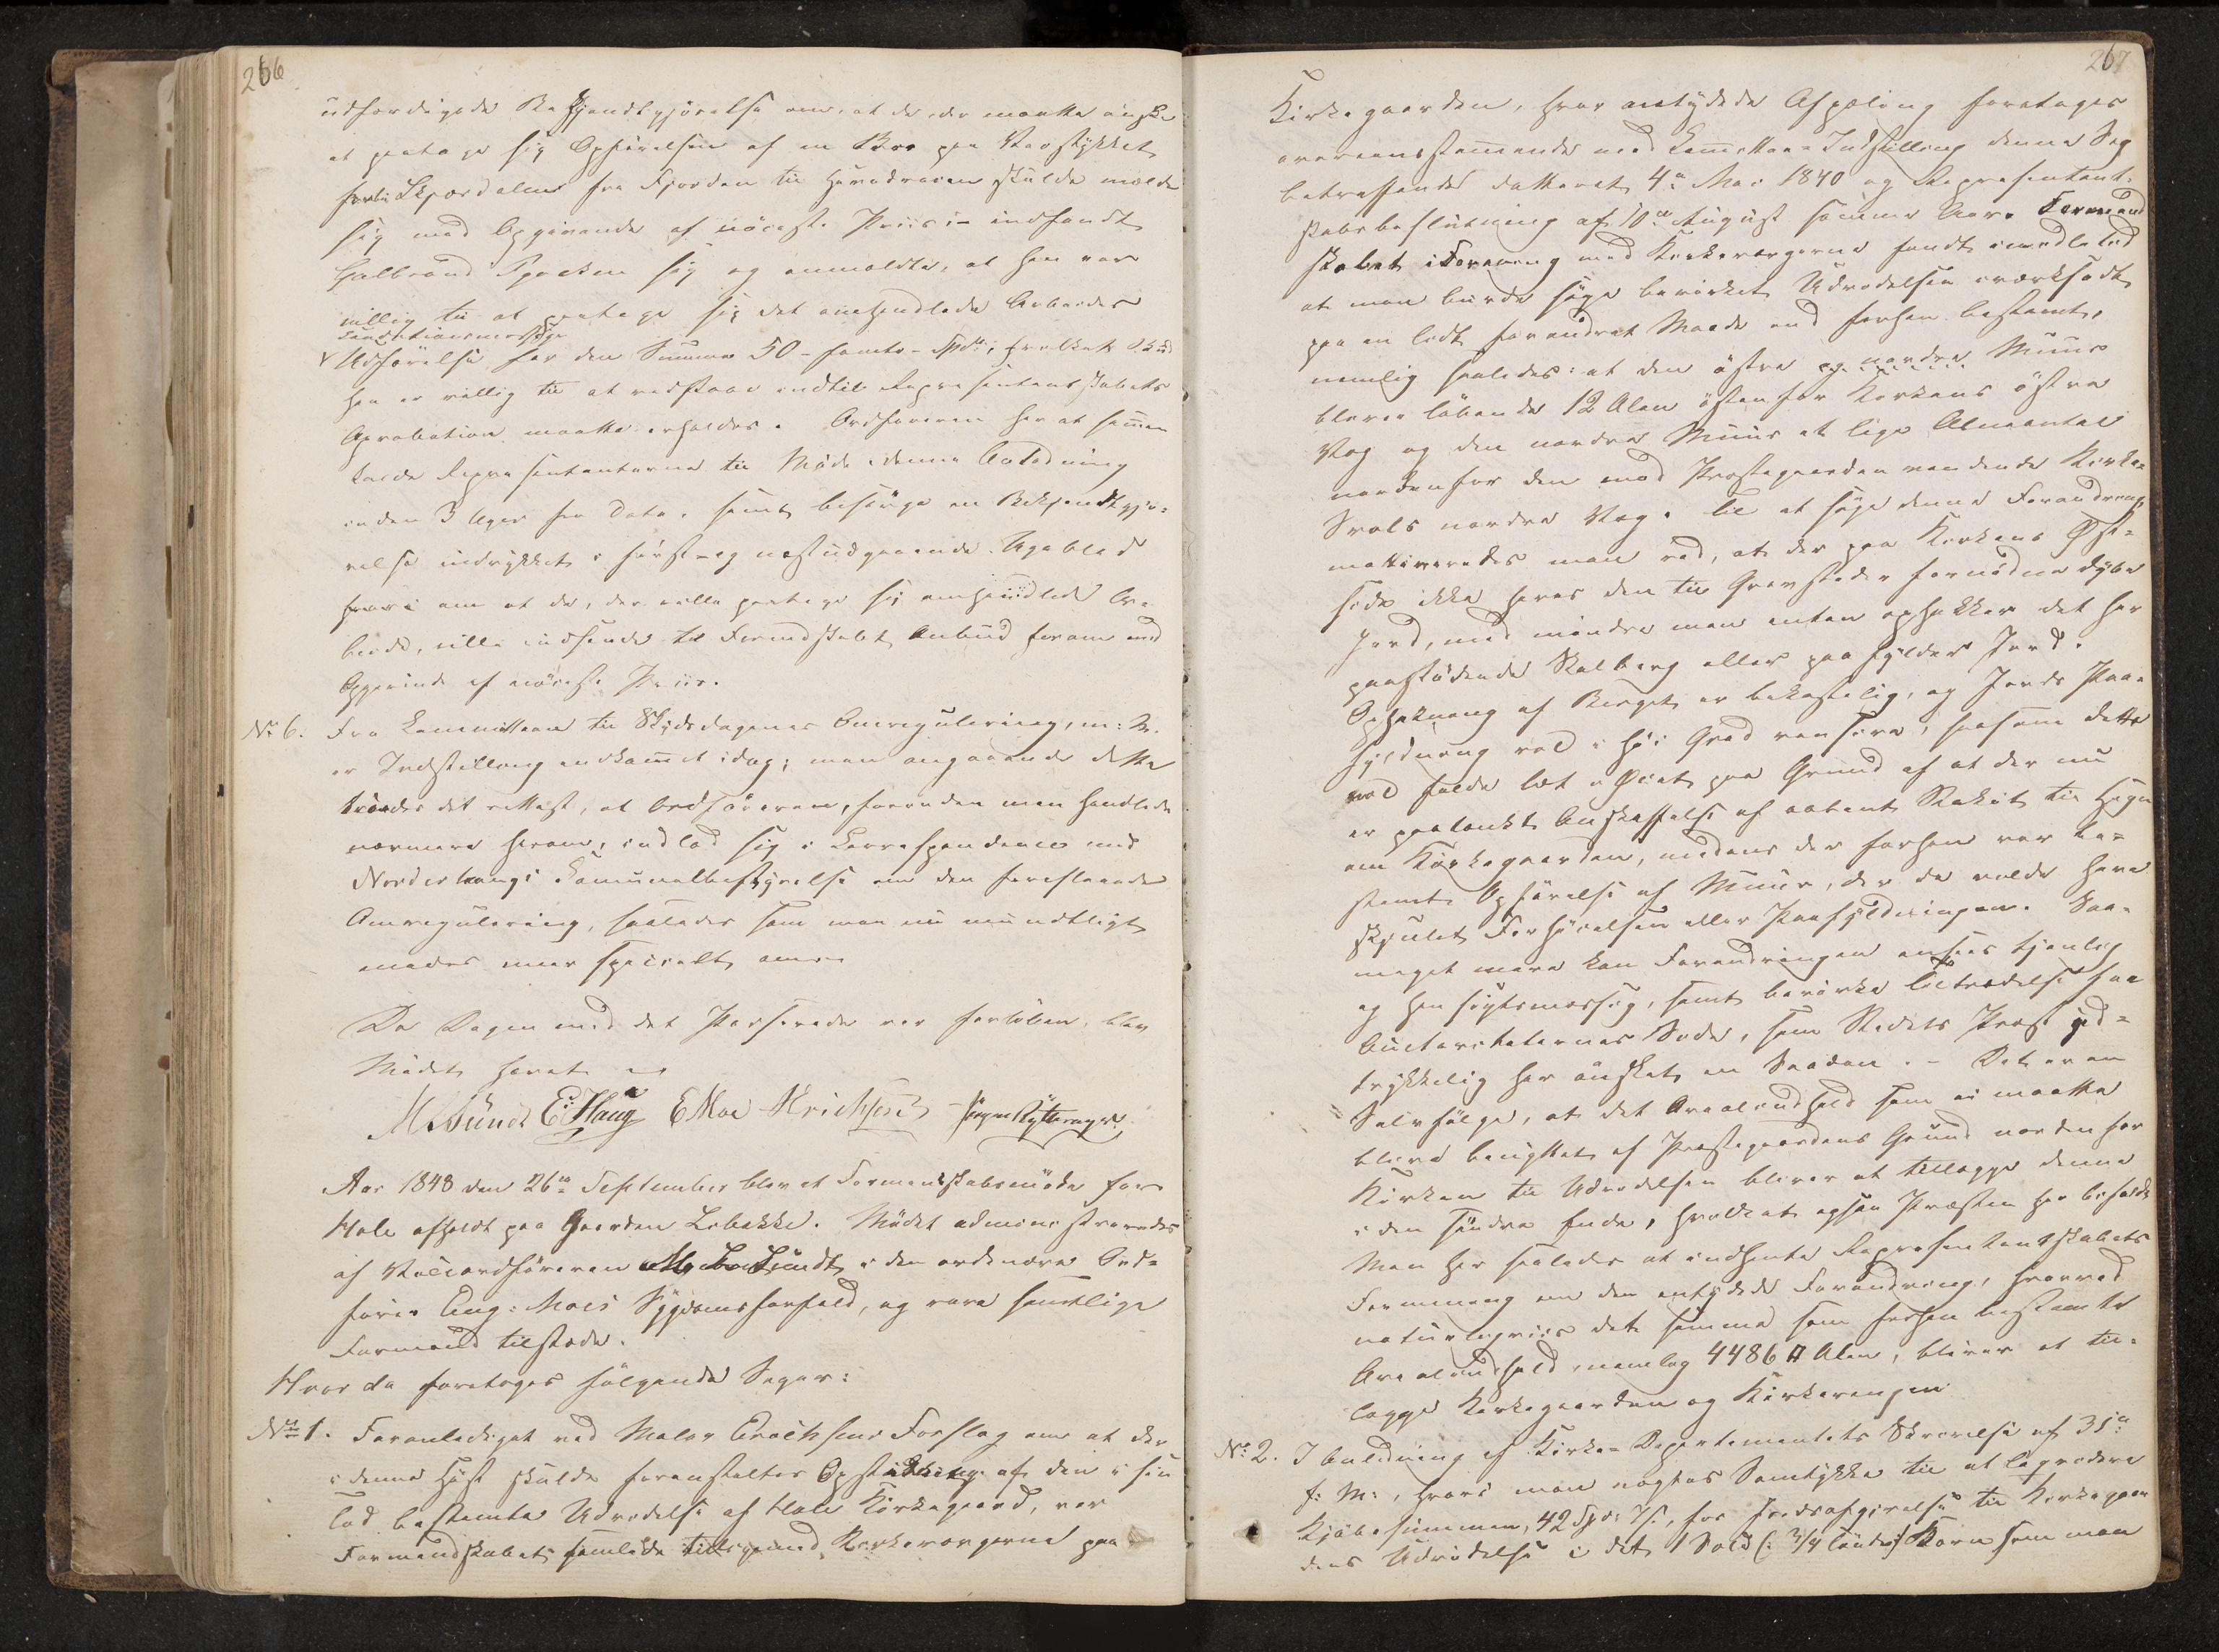 266
udfærdigede Bekjendtgjørelse om, at de, der maatte ønske
at paatage sig Opførelsen af en Bro paa Veistykket
forbi Skjærdalen fra Fjorden til Hurudveien skulde melde
sig med Opgivende af nøieste Priis i- indfandt
Gulbrand sig og anmeldte, at han var
villig til at paatage sig det omhandlede Arbeides
conditionsmæssige
Udførelse for den Summa 50 - femti - Spd, hvilket Bud
han er villig til at vedstaae indtil Repræsentantskabets
Aprobation maatte erholdes. Ordføreren har at sammen
kalde Repræsentanterne til Møde i denne Anledning
inden 3 Uger fra Dato, samt besørge en Bekjendtgjø-
relse indrykket i først- og næstudgaaende Ugeblad
hvori om at de, der ville paatage sig omhandlede Ar-
beide, ville indsende til Formdskabet Anbud herom med
Opgivende af nøieste Priis.
No 6. Fra Committeen til Skydsdagenes Omregulering, m: M.
er Indstilling indkommet idag; men angaaende dette
troedes det rettest, at Ordføreren, forinden man handlede
nærmere herom, indlod sig i Correspondence med
Norderhaugs Communalbestyrelse om den foreslaaede
Omregulering, saaledes som man nu mundtligt
enedes mer specielt om.
Da Dagen med det Passerede var forløben, blev
Mødet hævet
M. Sundt E: Haug E Moe Hrichsen Jørgen Rytterager.
Aar 1848 den 26de September blev et Formandskabsmøde for
Hole afholdt paa Gaarden Libakke. Mødet administreredes
af Viceordføreren Sundt i den ordinære Ord-
fører Eng: Moes Sygdomsforfald, og vare samtlige
Formænd tilstede.
Hvor da foretoges følgende Sager:
No 1. Foranlediget ved Maler Erichsens Forslag om at der
i denne Høst skulde foranstaltes Opstikking af den i sin
Tid bestemte Udvidelse af Hole Kirkegaard, var
Formandskabet samlede tilligemed Kirkeværgerne paa
267
Kirkegaarden, hvor antydede Afpæling foretoges
overeensstemmende med Committee-Indstilling denne Sag
betræffende datteret 4de Mai 1840 og Repræsentant-
skabsbeslutning af 10de August samme Aar. Formand
skabet i Forening med Kirkeværgerne fandt imidlertid
at man burde søge bevirket Udvidelsen iværksadt
paa en lidt forandret Maade end forhen bestemt,
nemlig saaledes: at den østre og nordre Muur
bliver løbende 12 Alen østenfor Kirkens østre
Væg og den nordre Muur et lige Alneantal
nordenfor den mod Præstegaarden vendende Kirke-
Svals nordre Væg. Til at søge denne Forandring
mottiveredes man ved, at der paa Kirkens Øst-
side ikke haves den til Gravsteder fornødne dybe
Jord, med mindre man enten ophakker det her
paastødende Kalberg eller paafylder Jord.
Ophakning af Berget er bekostelig, og Jords Paa-
fyldning vil i høi Grad vansire, saasom dette
vil falde let i Øiet paa Grund af at der nu
er paatænkt Anskaffelse af aabent Stakit til Hegn
om Kirkegaarden, medens der forhen var be-
stemt Opførelse af Muur, der da vilde have
skjulet Forhøielsen eller Paafyldningen. Saa-
meget mere kan Forandringen ansees tjenlig
og hensigtsmæssig, samt bevirke Tiltrædelse fra
Auctoriteternes Side, som Stedets Præst ud-
trykkelig har ønsket en Saadan. - Det er en
Selvfølge, at det Arealindhold som vi maatte
blive benyttet af Præstegaardens Grund nordenfor
Kirken til Udvidelsen bliver at tillægge denne
i den søndre Ende, hvilket ogsaa Præsten har
Man har saaledes at indhente Repræsentantskabets
Formening om den antydede Forandring, hvorved
naturligviis det samme som forhen bestemte
Arealindhold, nemlig 4486 □ Alen, bliver at til-
lægge Kirkegaarden og Kirkevangen
No 2. I Anledning af Kirke-Departementets Skrivelse af 31te
f: M:, hvori man nægtes Samtykke til at
Kjøbesummen, 42 Spd, for Jordafgivelse til Kirkegaar
dens Udvidelse i det 1 Sold (: 3/4 Tønde) Korn som man